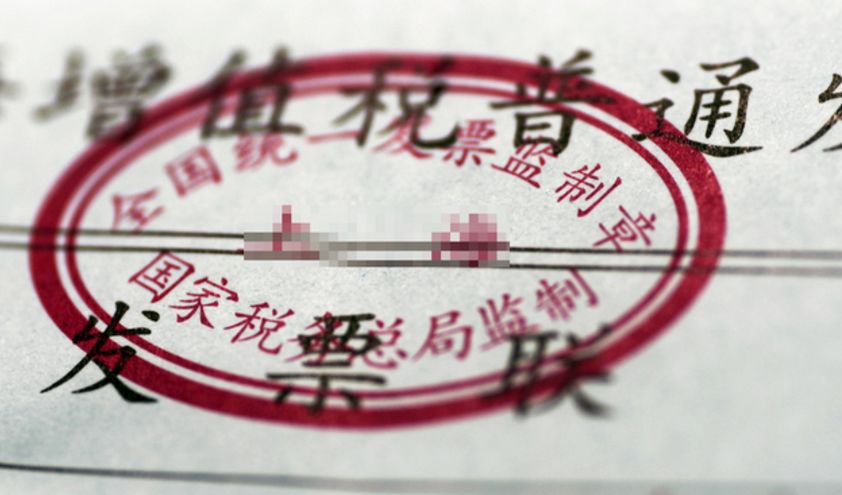 增值税普通发
全国统一发票监制章
国家税务总局监制
发票联